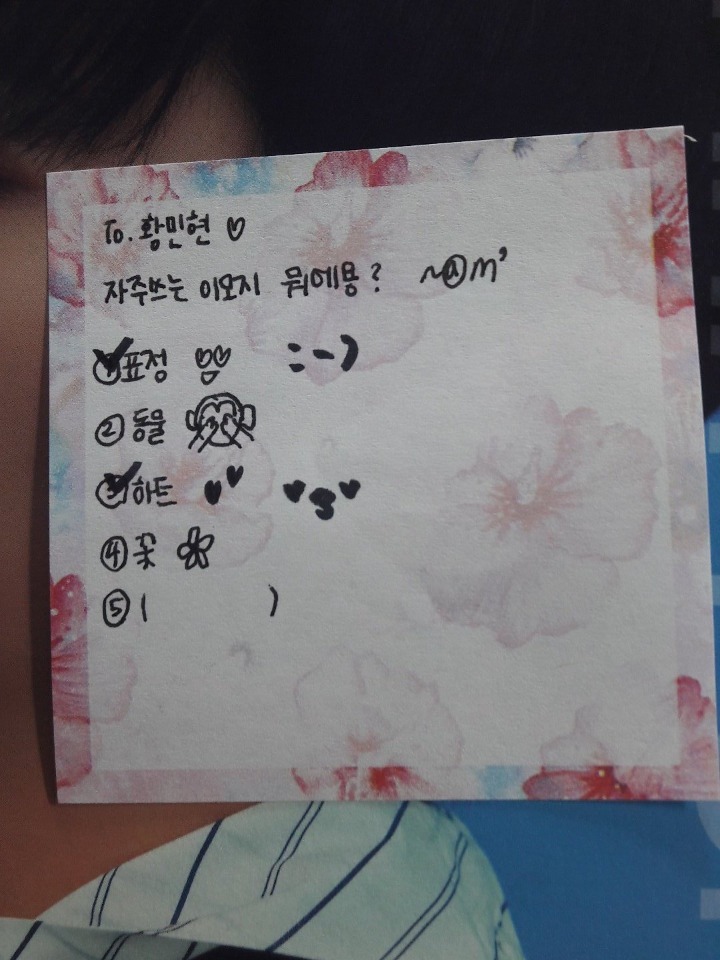 To. 황민현 ♡
자주쓰는 이모지 뭐에용? ~@m'
① 표정 :-)
② 동물
③ 하트 ♥♥
④ 꽃
⑤ ( )